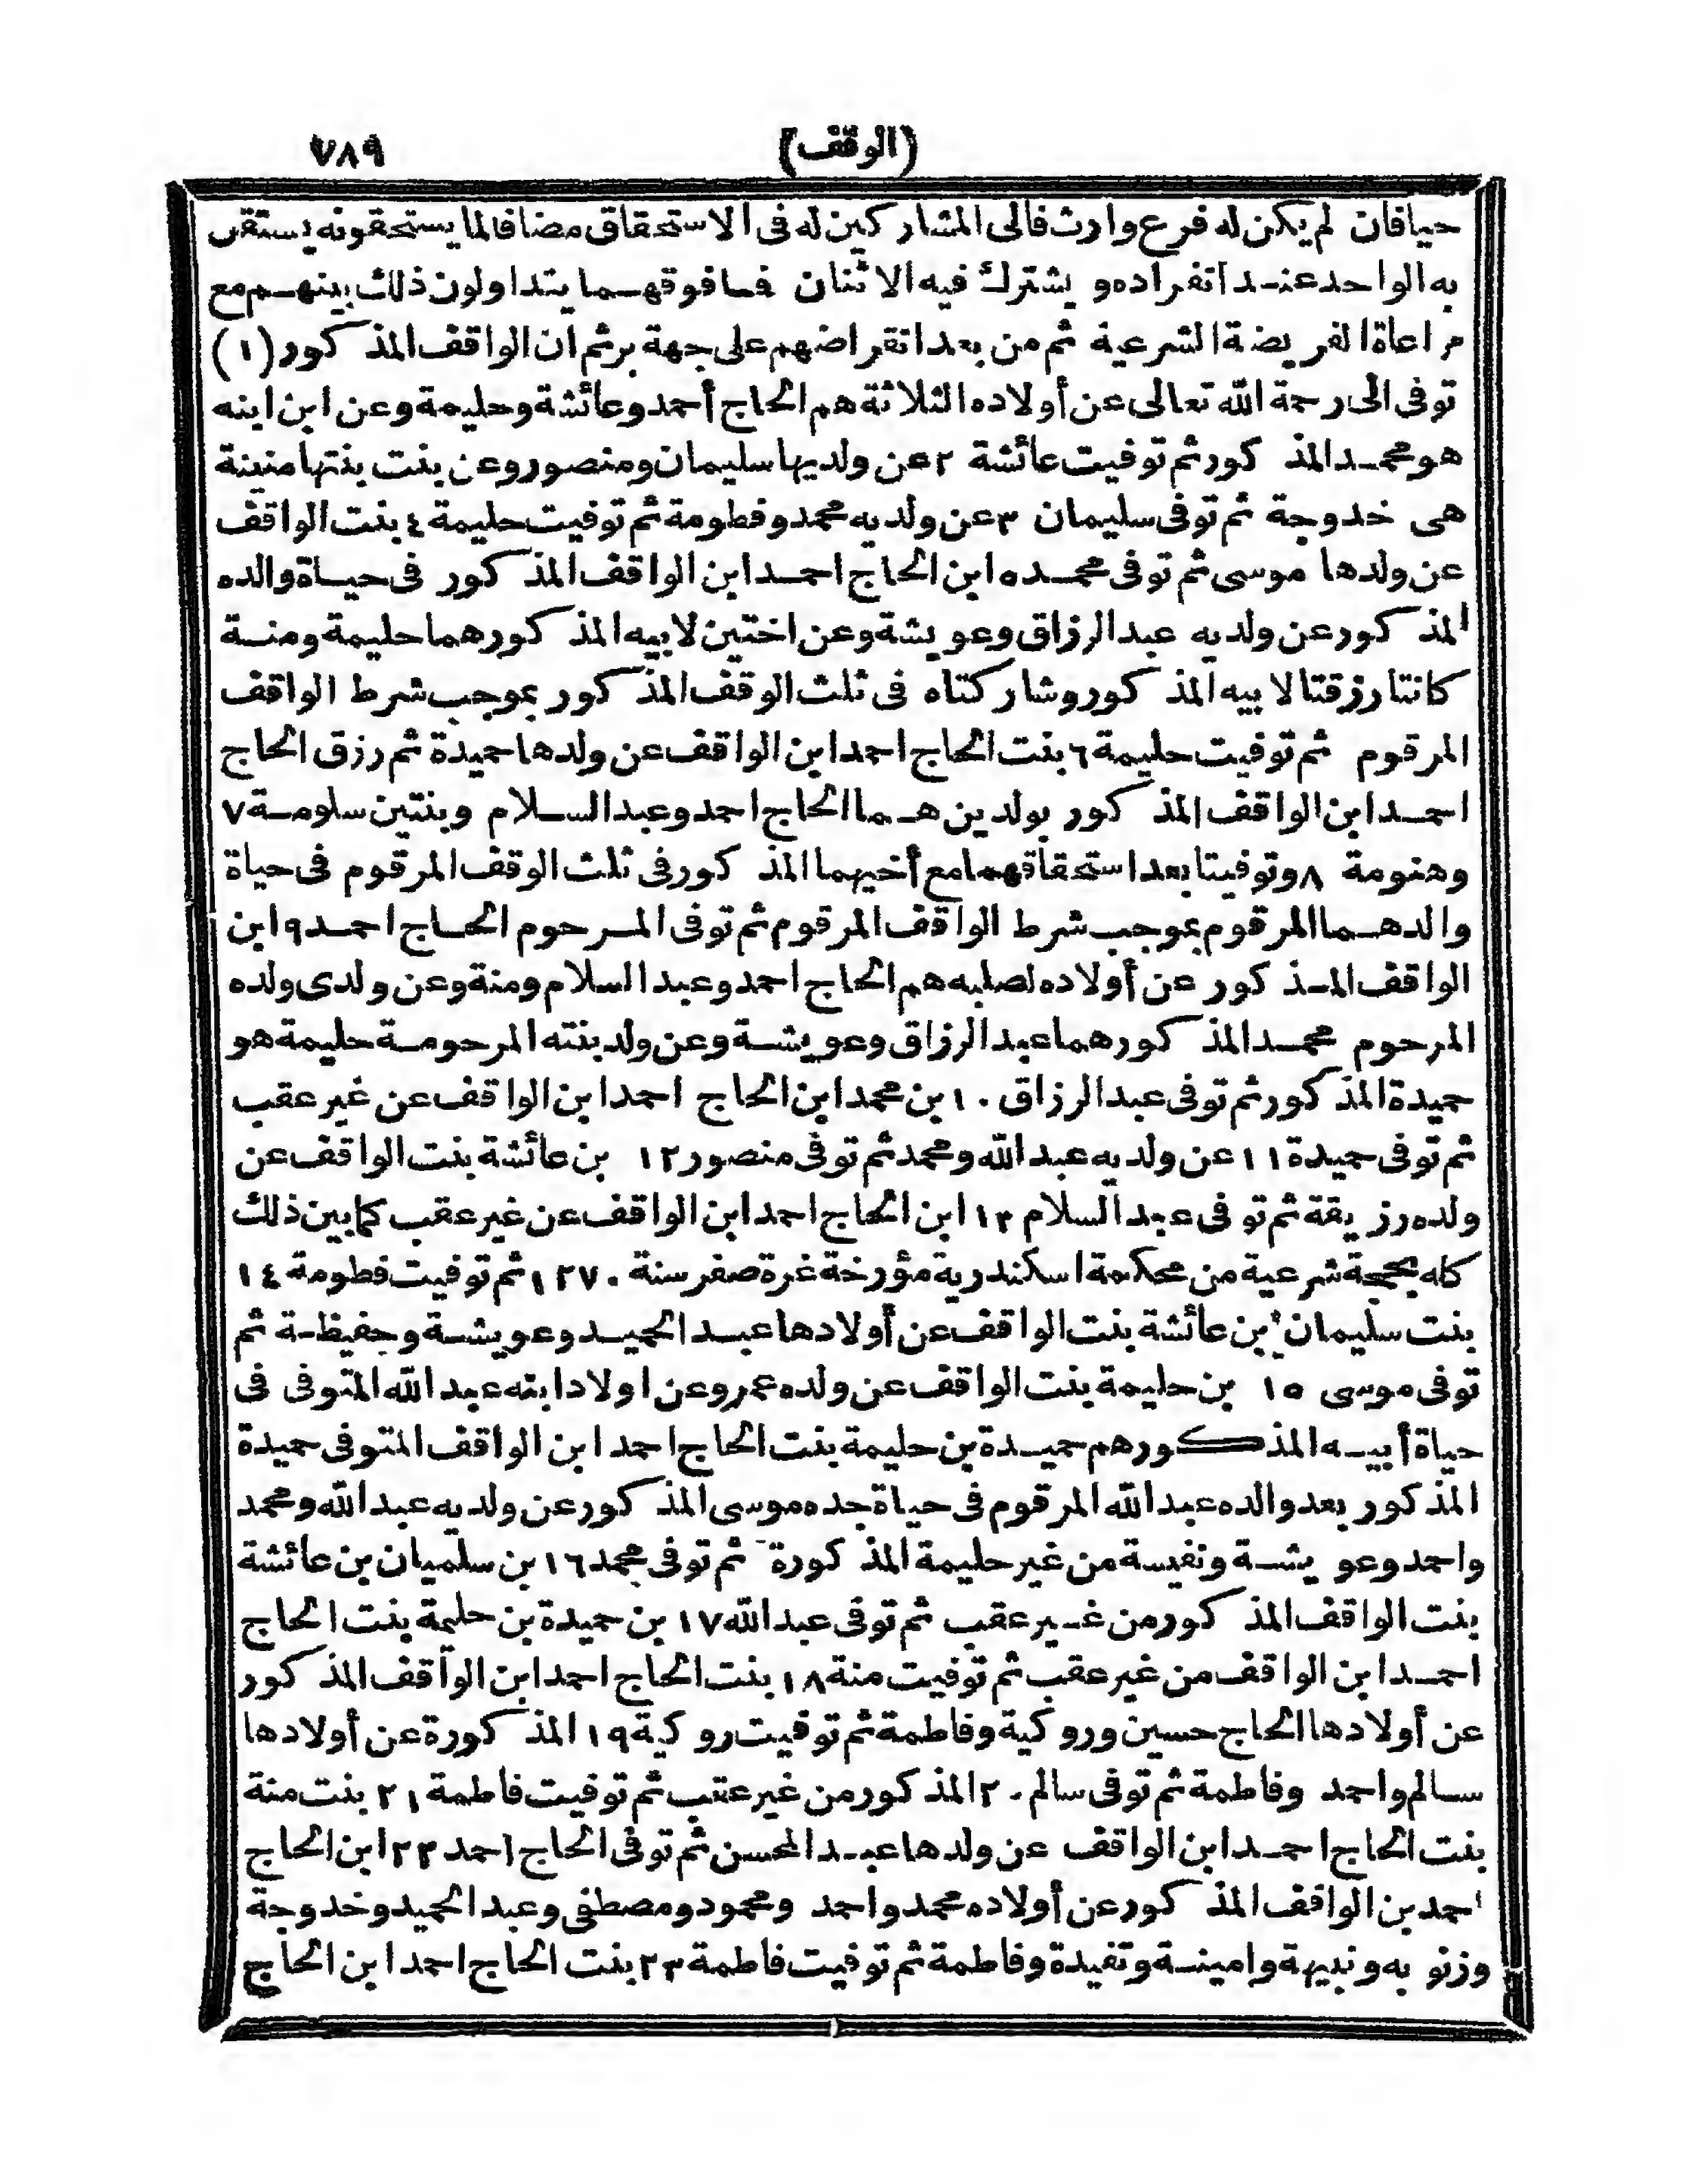 (الوقف) ٧٨٩
حيا فان لم يكن له فرع وارث فالى المشاركين له فى الاستحقاق مضافا لما يستحقونه يستقر
به الواحد عند انفراده ويشترك فيه الاثنان فما فوقهما يتداولون ذلك بينهم مع
مراعاة الفريضة الشرعية ثم من بعد انقراضهم على جهة بر ثم ان الواقف المذكور (١)
توفى الى رحمة الله تعالى عن أولاده الثلاثة هم الحاج أحمد وعائشة وحليمة وعن ابن ابنه
هو محمد المذكور ثم توفيت عائشة ٢ عن ولديها سليمان ومنصور وعن بنت بنتها منينة
هى خدوجة ثم توفى سليمان ٣ عن ولديه محمد وفطومة ثم توفيت حليمة ٤ بنت الواقف
عن ولدها موسى ثم توفى محمد ٥ ابن الحاج احمد ابن الواقف المذكور فى حياة والده
المذكور عن ولديه عبد الرزاق وعويشة وعن اختين لابيه المذكور هما حليمة ومنة
كانتا رزقتا لابيه المذكور وشاركتاه فى ثلث الوقف المذكور بموجب شرط الواقف
المرقوم ثم توفيت حليمة ٦ بنت الحاج احمد ابن الواقف عن ولدها حميدة ثم رزق الحاج
احمد ابن الواقف المذكور بولدين هما الحاج احمد وعبد السلام وبنتين سلومة ٧
وهنومة ٨ وتوفيتا بعد استحقاقهما مع أخيهما المذكور فى ثلث الوقف المرقوم فى حياة
والدهما المرقوم بموجب شرط الواقف المرقوم ثم توفى المرحوم الحاج احمد ٩ ابن
الواقف المذكور عن أولاده لصلبه هم الحاج احمد وعبد السلام ومنة وعن ولدى ولده
المرحوم محمد المذكور هما عبد الرزاق وعويشة وعن ولد بنته المرحومة حليمة هو
حميدة المذكور ثم توفى عبد الرزاق ١٠ بن محمد ابن الحاج احمد ابن الواقف عن غير عقب
ثم توفى حميدة ١١ عن ولديه عبد الله ومحمد ثم توفى منصور ١٢ بن عائشة بنت الواقف عن
ولده رزيقة ثم توفى عبد السلام ١٣ ابن الحاج احمد ابن الواقف عن غير عقب كما بين ذلك
كله بحجة شرعية من محكمة اسكندرية مؤرخة غرة صفر سنة ١٢٧٠ ثم توفيت فطومة ١٤
بنت سليمان بن عائشة بنت الواقف عن أولادها عبد الحميد وعويشة وحفيظة ثم
توفى موسى ١٥ بن حليمة بنت الواقف عن ولده عمرو وعن اولاد ابنه عبد الله المتوفى فى
حياة أبيه المذكور هم حميدة بن حليمة بنت الحاج احمد ابن الواقف المتوفى حميدة
المذكور بعد والده عبد الله المرقوم فى حياة جده موسى المذكور عن ولديه عبد الله ومحمد
واحمد وعويشة ونفيسة من غير حليمة المذكورة ثم توفى محمد ١٦ بن سلميان بن عائشة
بنت الواقف المذكور من غير عقب ثم توفى عبد الله ١٧ بن حميدة بن حليمة بنت الحاج
احمد ابن الواقف من غير عقب ثم توفيت منة ١٨ بنت الحاج احمد ابن الواقف المذكور
عن أولادها الحاج حسين وروكية وفاطمة ثم توفيت روكية ١٩ المذكورة عن أولادها
سالم واحمد وفاطمة ثم توفى سالم ٢٠ المذكور من غير عقب ثم توفيت فاطمة ٢١ بنت منة
بنت الحاج احمد ابن الواقف عن ولدها عبد المحسن ثم توفى الحاج احمد ٢٢ ابن الحاج
احمد بن الواقف المذكور عن أولاده محمد واحمد ومحمود ومصطفى وعبد الحميد وخدوجة
وزنوبه ونبيهة وامينة وتفيدة وفاطمة ثم توفيت فاطمة ٢٣ بنت الحاج احمد ابن الحاج